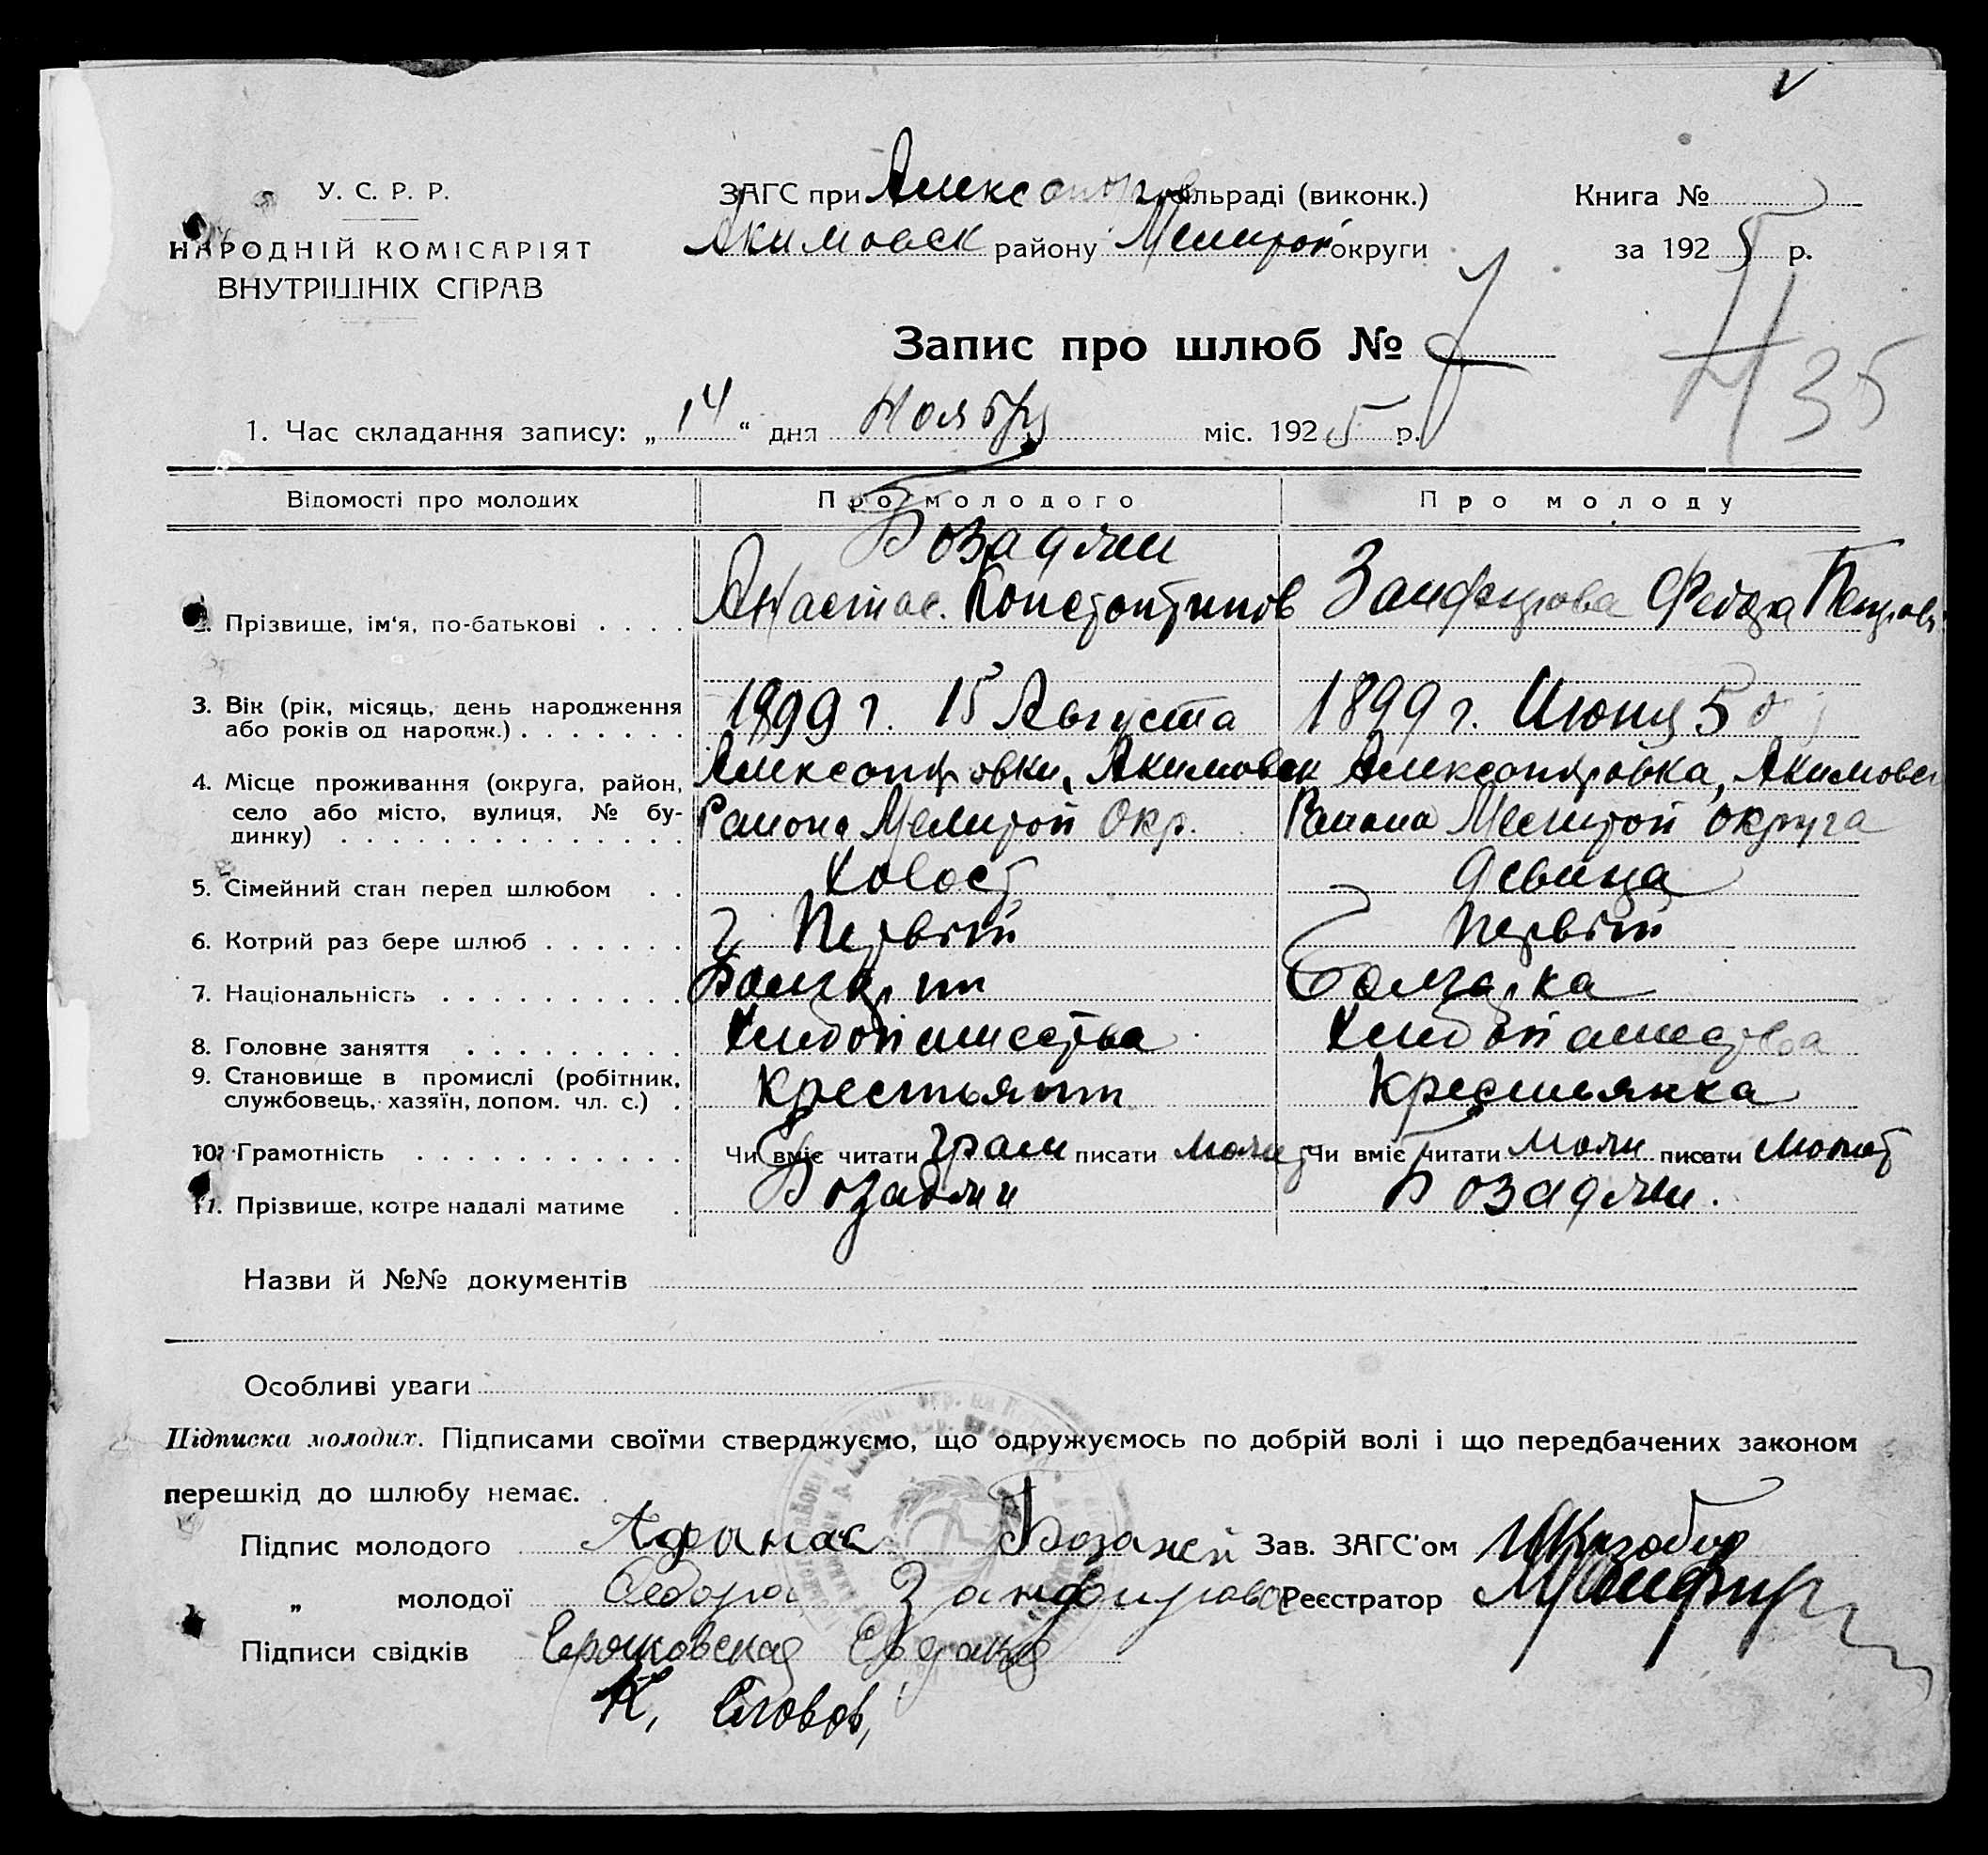 У. С. Р. Р.
НАРОДНІЙ КОМІСАРІЯТ
ВНУТРІШНІХ СПРАВ
ЗАГС при Александров сільраді (виконк.)
Акимовск району Мелитоп округи
Книга №
за 1925 р.
Запис про шлюб №
Н 35
1. Час складання запису: „14“ дня Ноября міс. 1925 р.
Відомості про молодих
Про молодого
Про молоду
2. Прізвище, ім‘я, по-батькові
Бозаджи
Константинов
Занфирова Федора Петров
3. Вік (рік, місяць, день народження
або років од народж.)
1899 г. 15 Августа
1899 г. Июня 5
4. Місце проживання (округа, район,
село або місто, вулиця, № бу-
динку)
Александровки, Акимовск
Района Мелитоп Окр.
Александровка, Акимовск
Района Мелитоп округа
5. Сімейний стан перед шлюбом
Холост
девица
6. Котрий раз бере шлюб
Первый
Первый
7. Національність
Болгарин
Болгарка
8. Головне заняття
Хлебопашества
Хлебопашества
9. Становище в промислі (робітник,
службовець, хазяїн, допом. чл. с.)
Крестьянин
Крестьянка
10. Грамотність
Чи вміє читати грам писати
Чи вміє читати писати
11. Прізвище, котре надалі матиме
Бозаджи
Бозаджи.
Назви й №№ документів
Особливі уваги
Підписка молодих. Підписами своїми стверджуємо, що одружуємось по добрій волі і що передбачених законом
перешкід до шлюбу немає.
Підпис молодого Афанас Бозажи
Зав. ЗАГС'ом
„ молодої Федора Занфирова
Реєстратор
Підписи свідків
К.